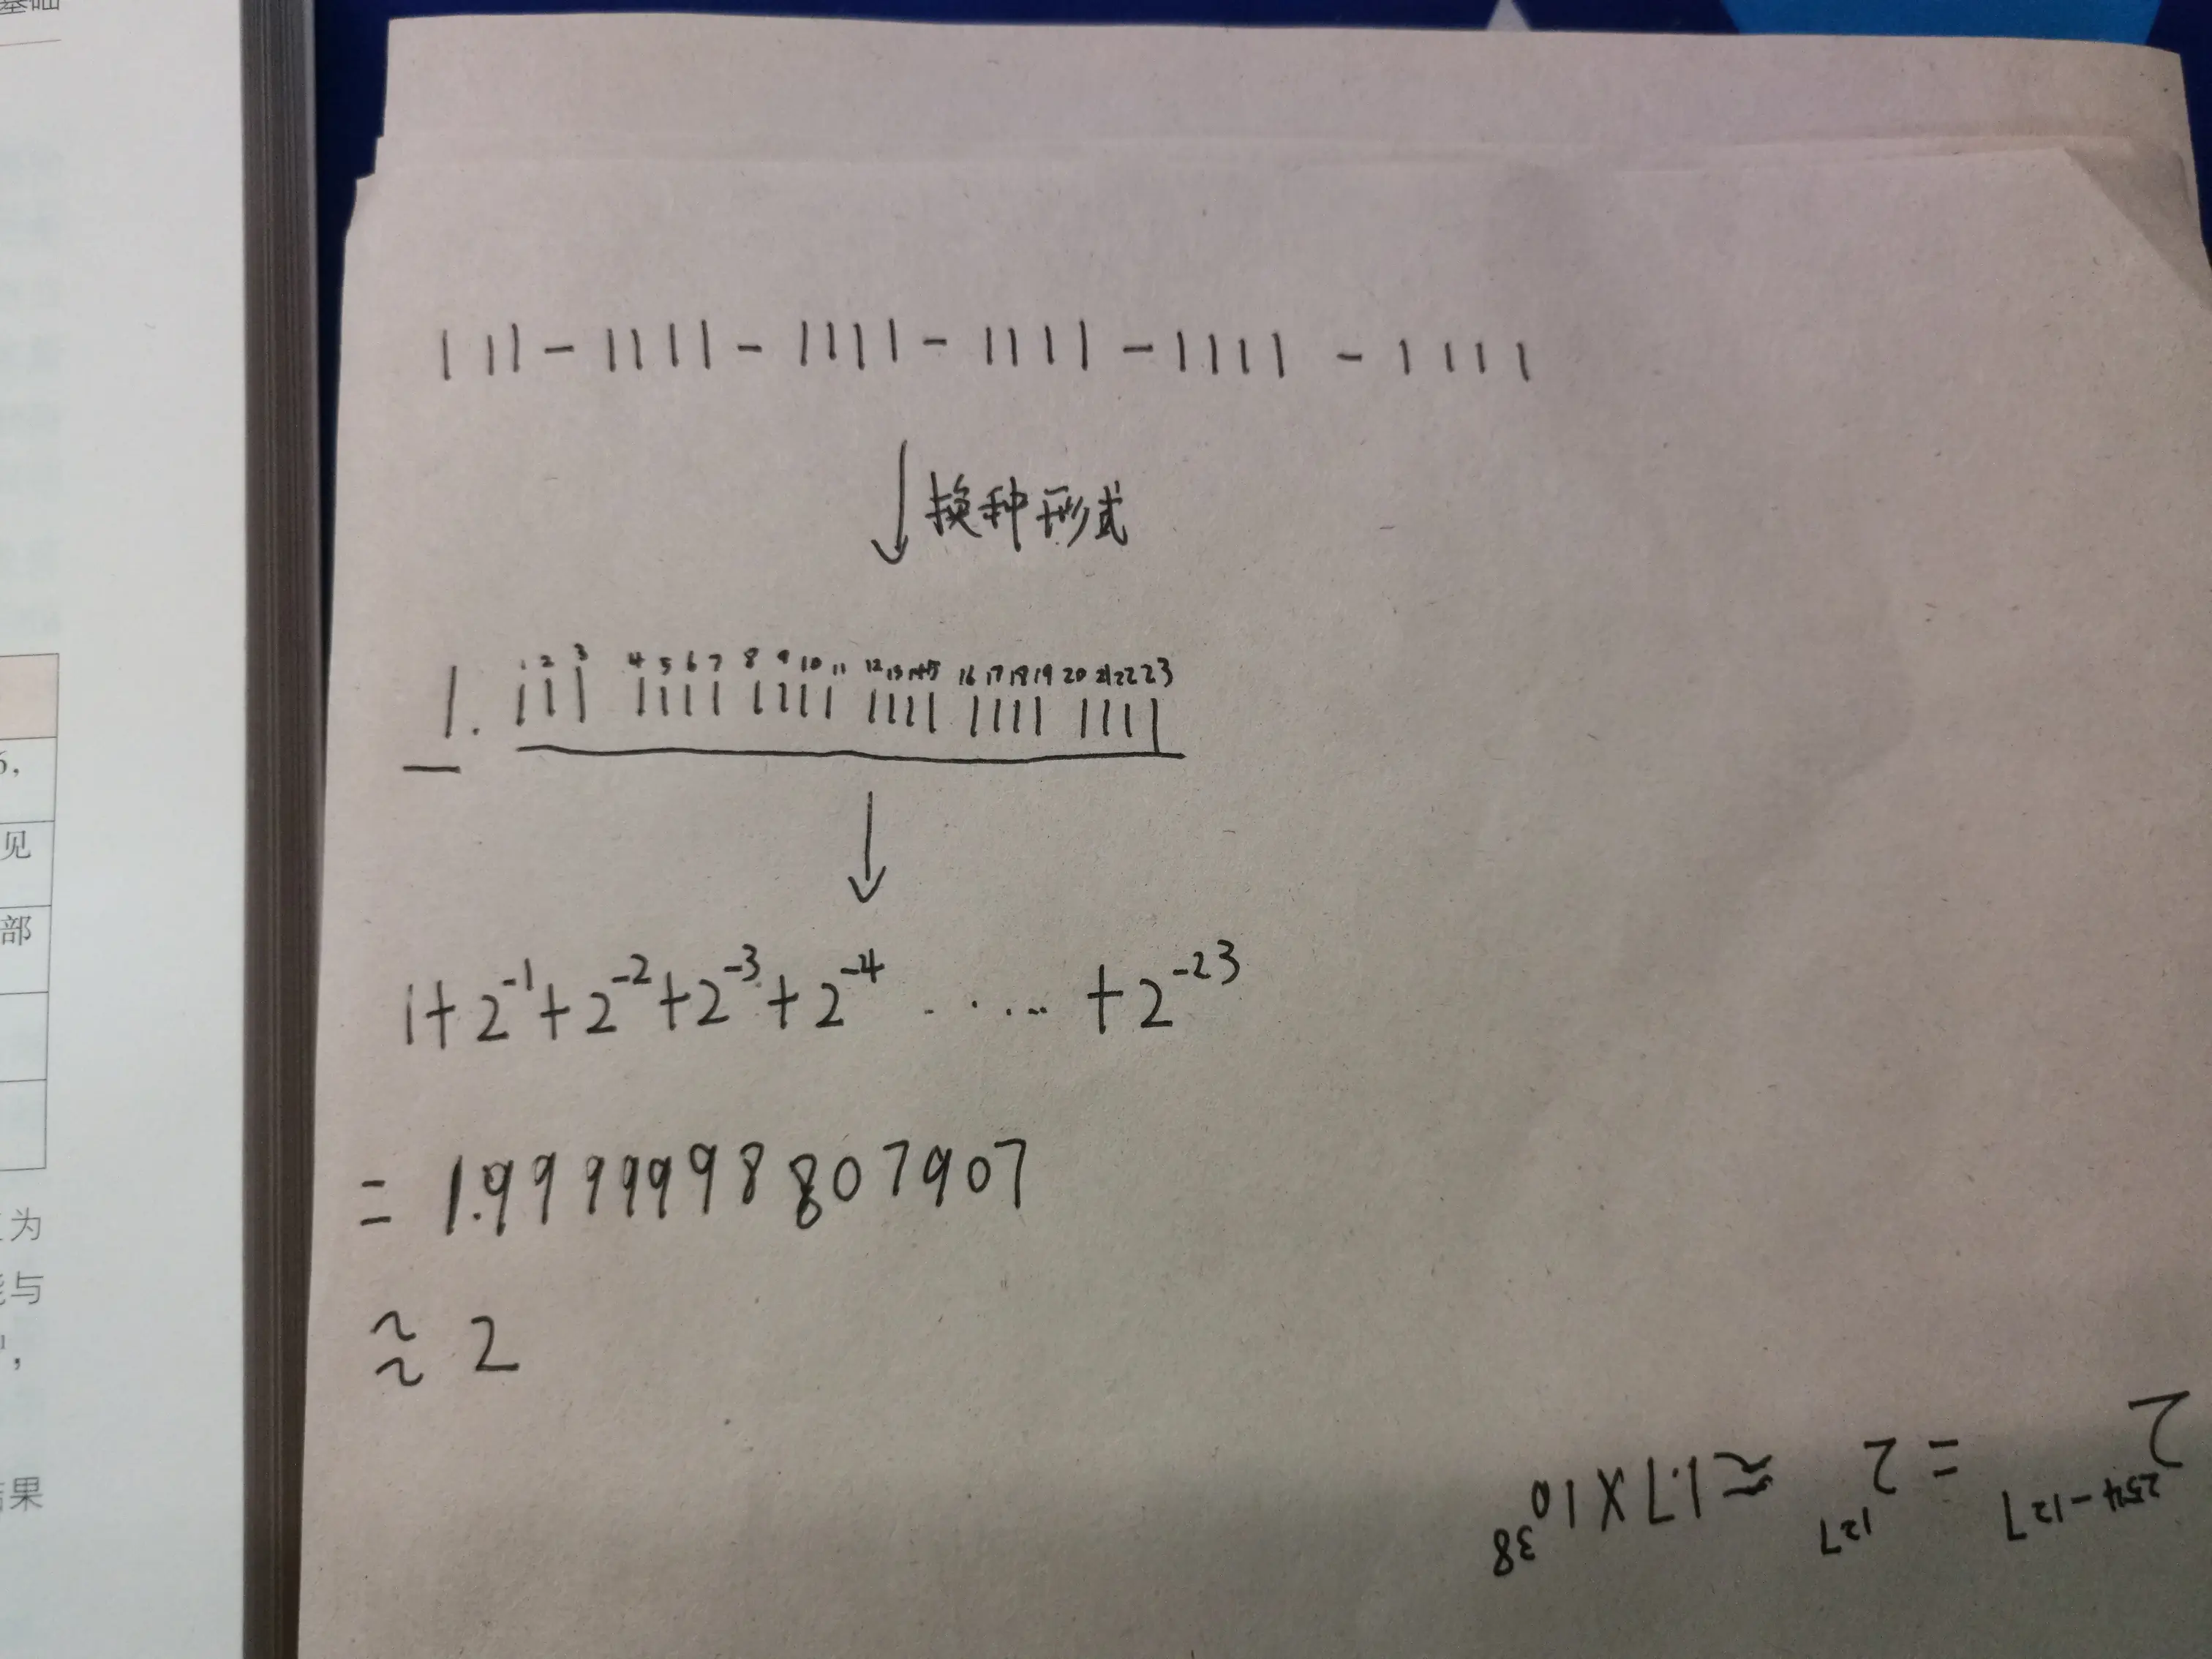 基础
6,
见
部
为
与
,
果
111-1111-1111-1111-1111-1111
换种形式
1 2 3 4 5 6 7 8 9 10 11 12 13 14 15 16 17 18 19 20 21 22 23
1. 111 1111 1111 1111 1111 1111
1+2⁻¹+2⁻²+2⁻³+2⁻⁴ ..... +2⁻²³
= 1.99999998807907
≈ 2
2²⁵⁴⁻¹²⁷ = 2¹²⁷ ≈ 1.7X10³⁸